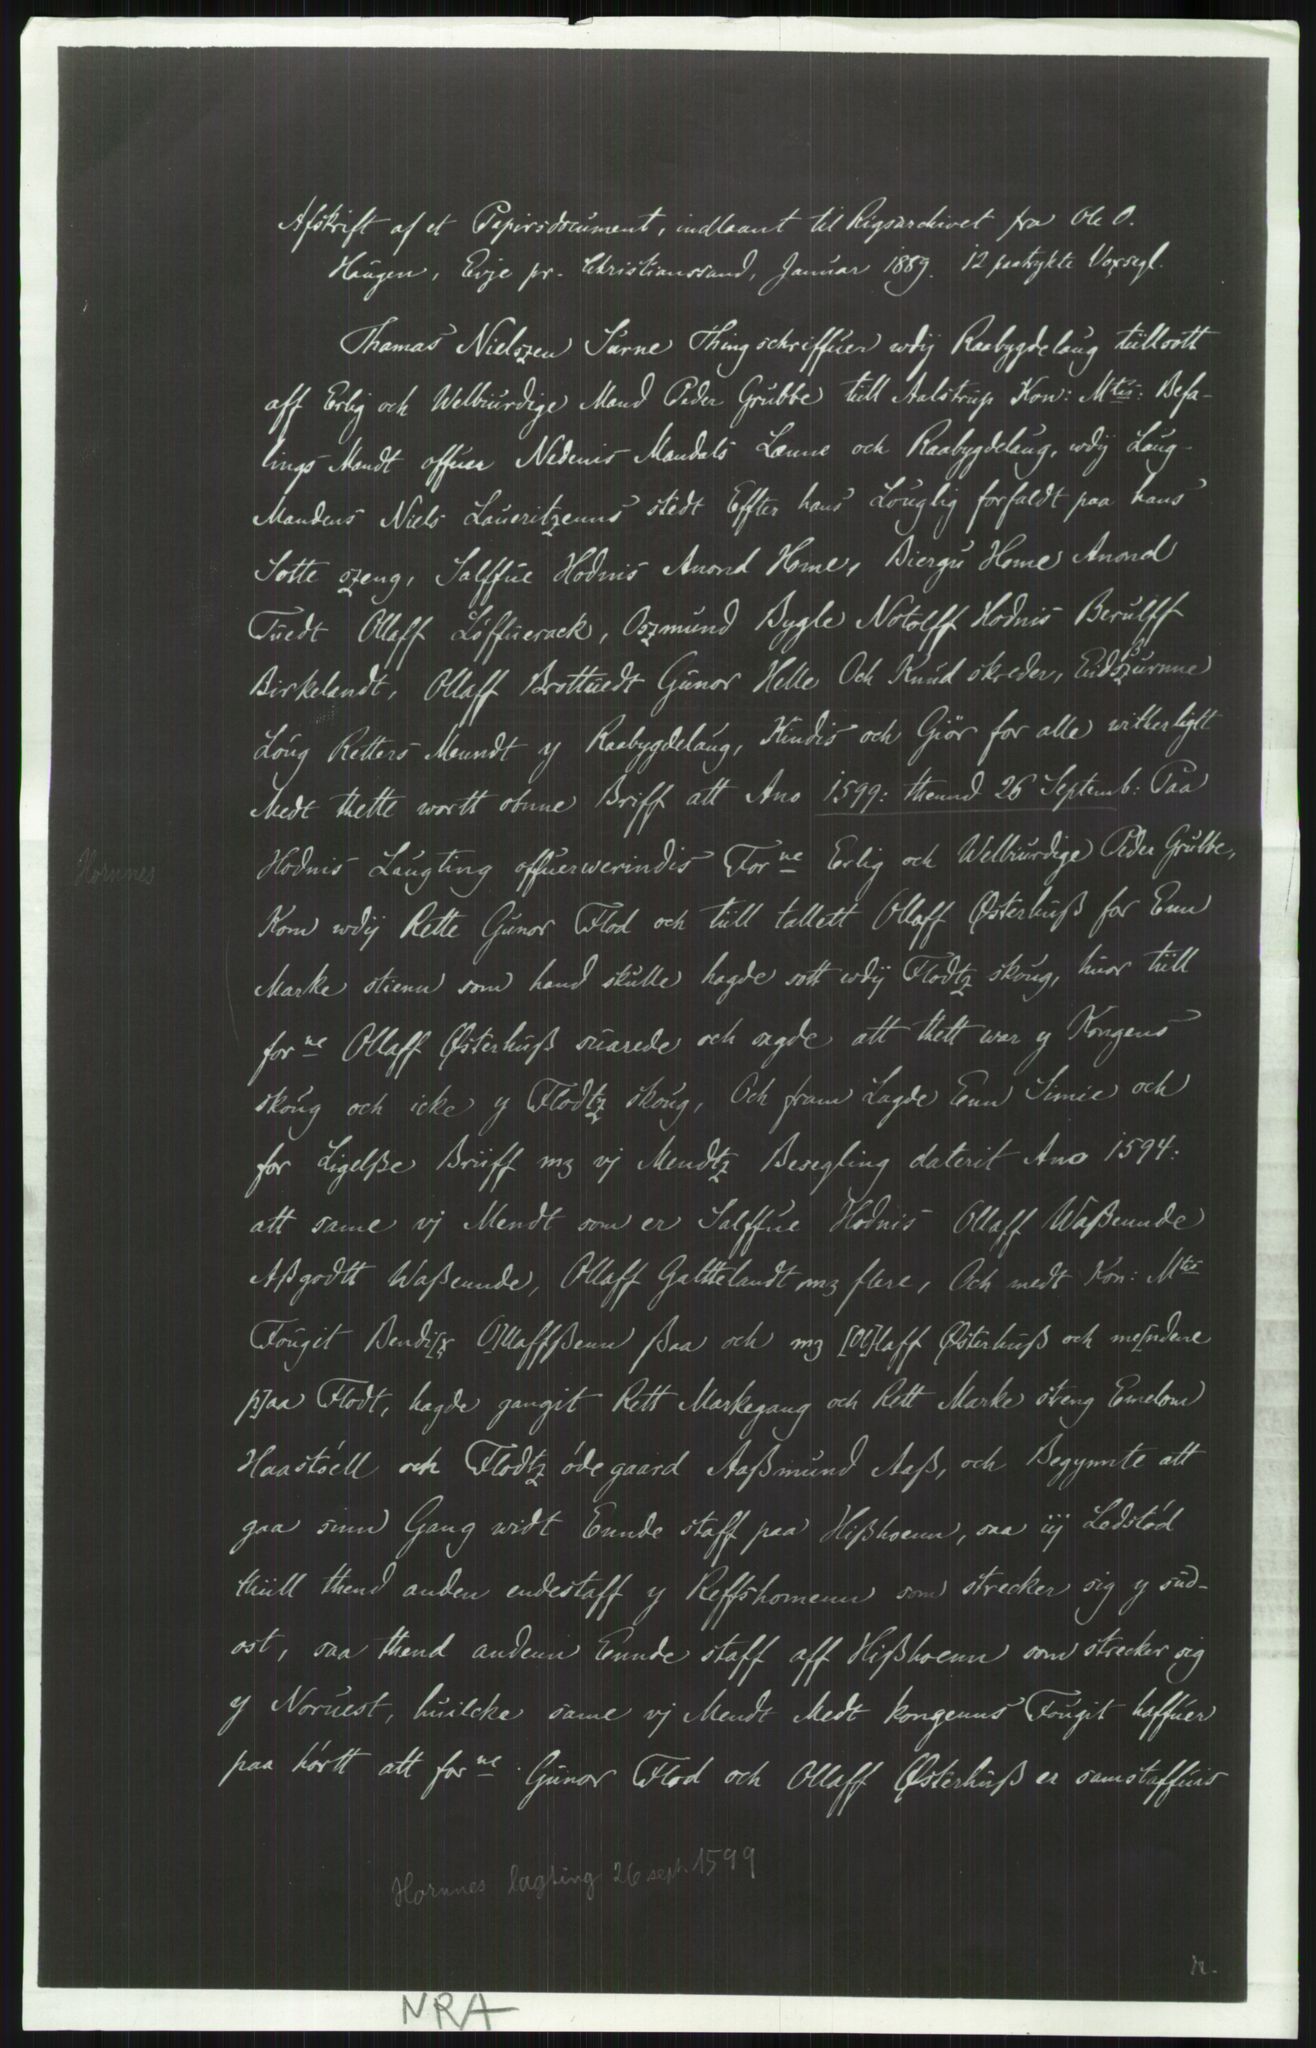 Afskrift af et Papirsdocument, indlaant til Rigsarchivet fra Ole O.
Haugen, Evje pr. Christianssand, Januar 1889. 12 paatrykte Voxsegl.
Thamas Nielszen Surne Thingschriffuer wdij Raabygdelaug tillsott
aff Erlig och Welbiurdige Mand Peder Grubbe till Aalstrup Kon: Mtis: Befa-
lings Mandt offuer Nedenis Mandals Lænne och Raabygdelaug, wdij Laug-
Mandens Niels Laueritzenns stedt Effter hans Louglig forfaldt paa hans
Sotte szeng, Salffue Hodnis Anond Home, Biergu Home Anond
Tuedt Ollaff Löffuerack, Oszmund Bygle Notolff Hodnis Berulff
Birkelandt, Ollaff Brottuedt Gunor Helle Och Knud skreder, Eidszurnne
Loug Retters Menndt y Raabygdelaug, Kindis och Giör for alle witherligt
Medt thette wortt obnne Briff att Ano 1599: thennd 26 Septemb: Paa
Hornnes
Hodnis Laugting offuerwerindis Forne Erlig och Welbiurdige Peder Grubbe,
Kom wdij Rette Gunor Flod och till tallett Ollaff Østerhuß for Enn
Marke stienn som hand skulle hagde sott wdij Flodtz skoug, huor till
forne Ollaff Østerhuß suarede och sagde att thett war y Kongens
skoug och icke y Flodtz skoug, Och fram Lagde Enn Simie och
for Ligelße Briiff mz vj Mendtz Besegling daterit Ano 1594:
att same vj Mendt som er Salffue Hodnis Ollaff Waßennde
Aßgodtt Waßennde, Ollaff Galthelandt mz flere, Och medt Kon: Mtis
Fougit Bendi[x O]llaffßenn ßaa och mz [Ol]laff Østerhuß och me[ndene
p]aa Flodt, hagde gangit Rett Markegang och Rett Marke streng Emelom
Haastöell och Flodtz öde gaard Aaßmund Aaß, och Begynnte att
gaa sinn Gang widt Ennde staff paa Hißhoenn, saa iij Ledstöd
thiill thend anden endestaff y Reffshomenn som strecker sig y sud-
ost, saa thend andenn Ennde staff aff Hißhoenn som strecker sig
y Noruest, huilcke same vj Mendt Medt kongenns Fougit haffuer
paa hörtt att forne Gunor Flod och Ollaff Østerhuß er samstaffuis
Hornnes lagting 26 sept 1599
NRA